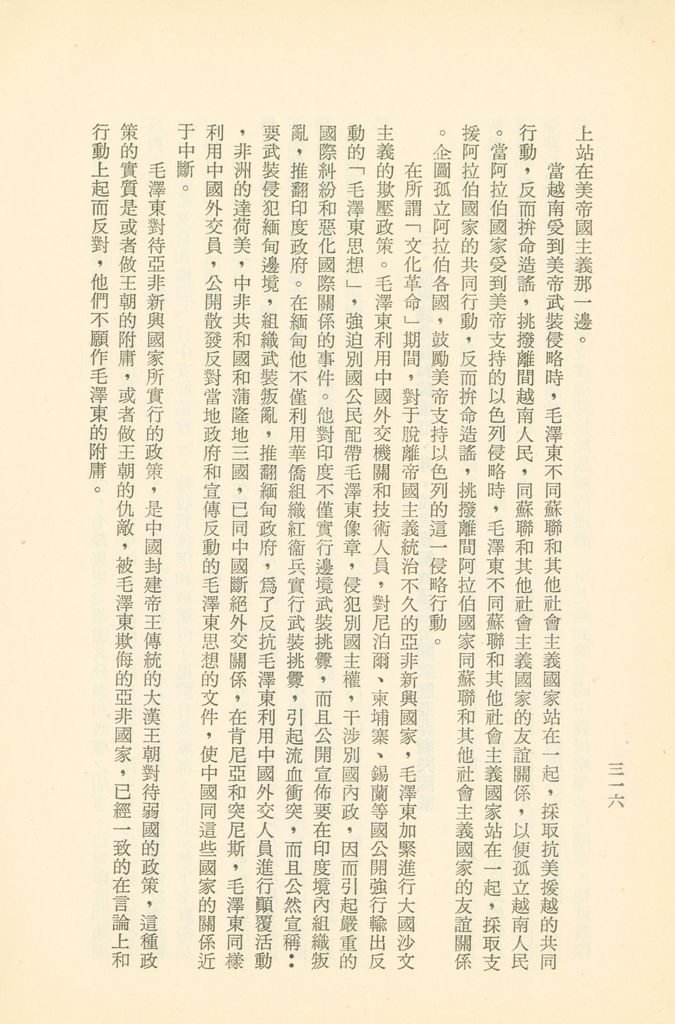 三一六
上站在美帝國主義那一邊。
當越南受到美帝武裝侵略時，毛澤東不同蘇聯和其他社會主義國家站在一起，採取抗美援越的共同
行動，反而拚命造謠，挑撥離間越南人民，同蘇聯和其他社會主義國家的友誼關係，以便孤立越南人民
。當阿拉伯國家受到美帝支持的以色列侵略時，毛澤東不同蘇聯和其他社會主義國家站在一起，採取支
援阿拉伯國家的共同行動，反而拚命造謠，挑撥離間阿拉伯國家同蘇聯和其他社會主義國家的友誼關係
。企圖孤立阿拉伯各國，鼓勵美帝支持以色列的這一侵略行動。
在所謂「文化革命」期間，對于脫離帝國主義統治不久的亞非新興國家，毛澤東加緊進行大國沙文
主義的欺壓政策。毛澤東利用中國外交機關和技術人員，對尼泊爾、柬埔寨、錫蘭等國公開強行輸出反
動的「毛澤東思想」，強迫別國公民配帶毛澤東像章，侵犯別國主權，干涉別國內政，因而引起嚴重的
國際糾紛和惡化國際關係的事件。他對印度不僅實行邊境武裝挑釁，而且公開宣佈要在印度境內組織叛
亂，推翻印度政府。在緬甸他不僅利用華僑組織紅衞兵實行武裝挑釁，引起流血衝突，而且公然宣稱：
要武裝侵犯緬甸邊境，組織武裝叛亂，推翻緬甸政府，爲了反抗毛澤東利用中國外交人員進行顚覆活動
，非洲的達荷美，中非共和國和蒲隆地三國，已同中國斷絕外交關係，在肯尼亞和突尼斯，毛澤東同樣
利用中國外交員，公開散發反對當地政府和宣傳反動的毛澤東思想的文件，使中國同這些國家的關係近
于中斷。
毛澤東對待亞非新興國家所實行的政策，是中國封建帝王傳統的大漢王朝對待弱國的政策，這種政
策的實質是或者做王朝的附庸，或者做王朝的仇敵，被毛澤東欺侮的亞非國家，已經一致的在言論上和
行動上起而反對，他們不願作毛澤東的附庸。